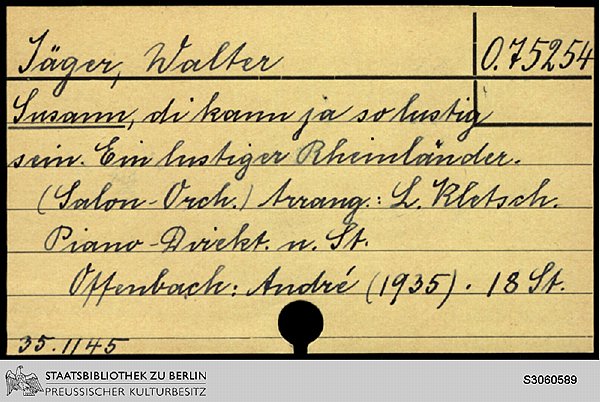 Jäger, Walter
O.75254
Susann, di kann ja so lustig
sein. Ein lustiger Rheinländer.
(Salon-Orch.) Arrang.: L. Kletsch.
Piano-Direkt. u. St.
Offenbach: André (1935). 18 St.
35.1145
STAATSBIBLIOTHEK ZU BERLIN
PREUSSISCHER KULTURBESITZ
S3060589